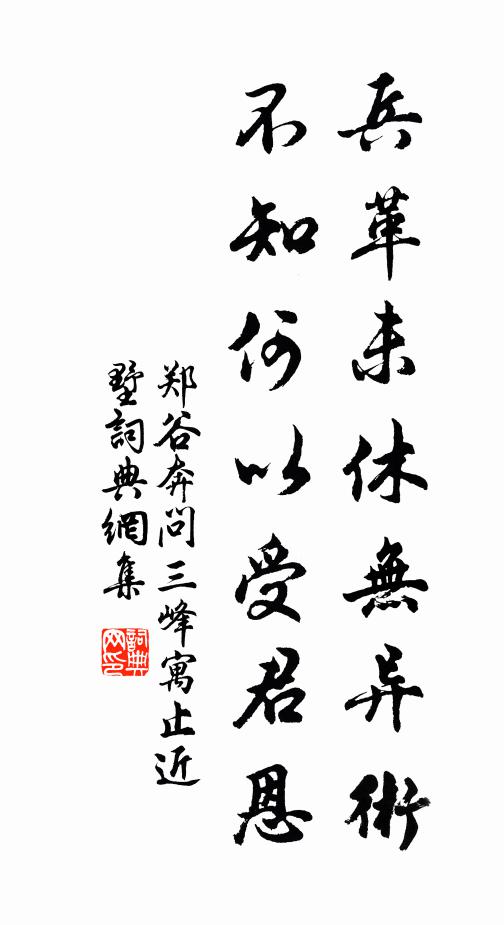 兵革未休無异術
不知何以受君恩
郑谷奔问三峰寓止近
墅詞典網集
詞典網印